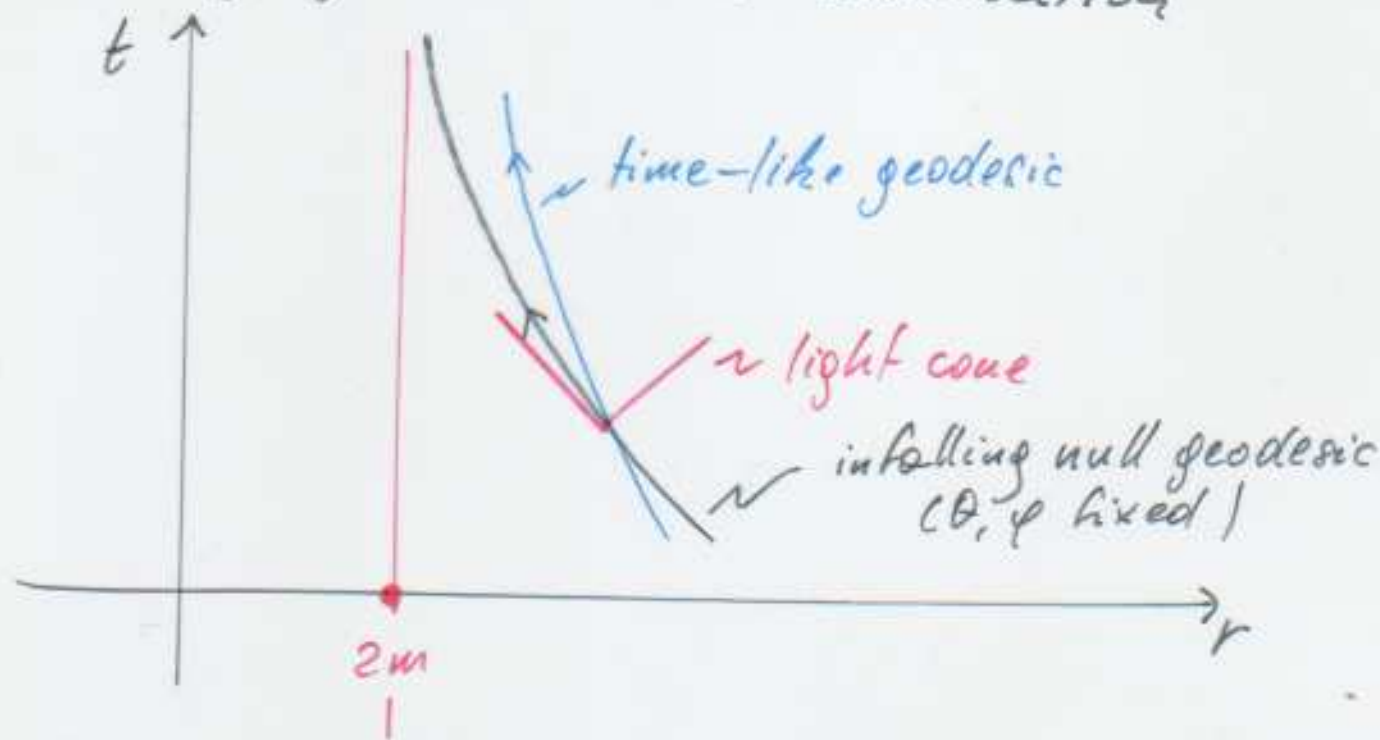 t
time-like geodesic
~ light cone
infalling null geodesic
(θ, φ fixed)
r
2m